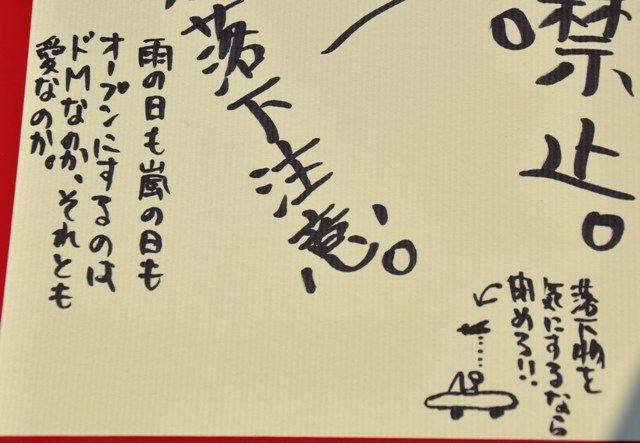 噤止。
落下注意。
雨の日も嵐の日も
オープンにするのは
ドMなのか、それとも
愛なのか。
落下物を
気にするなら
閉めろ!!